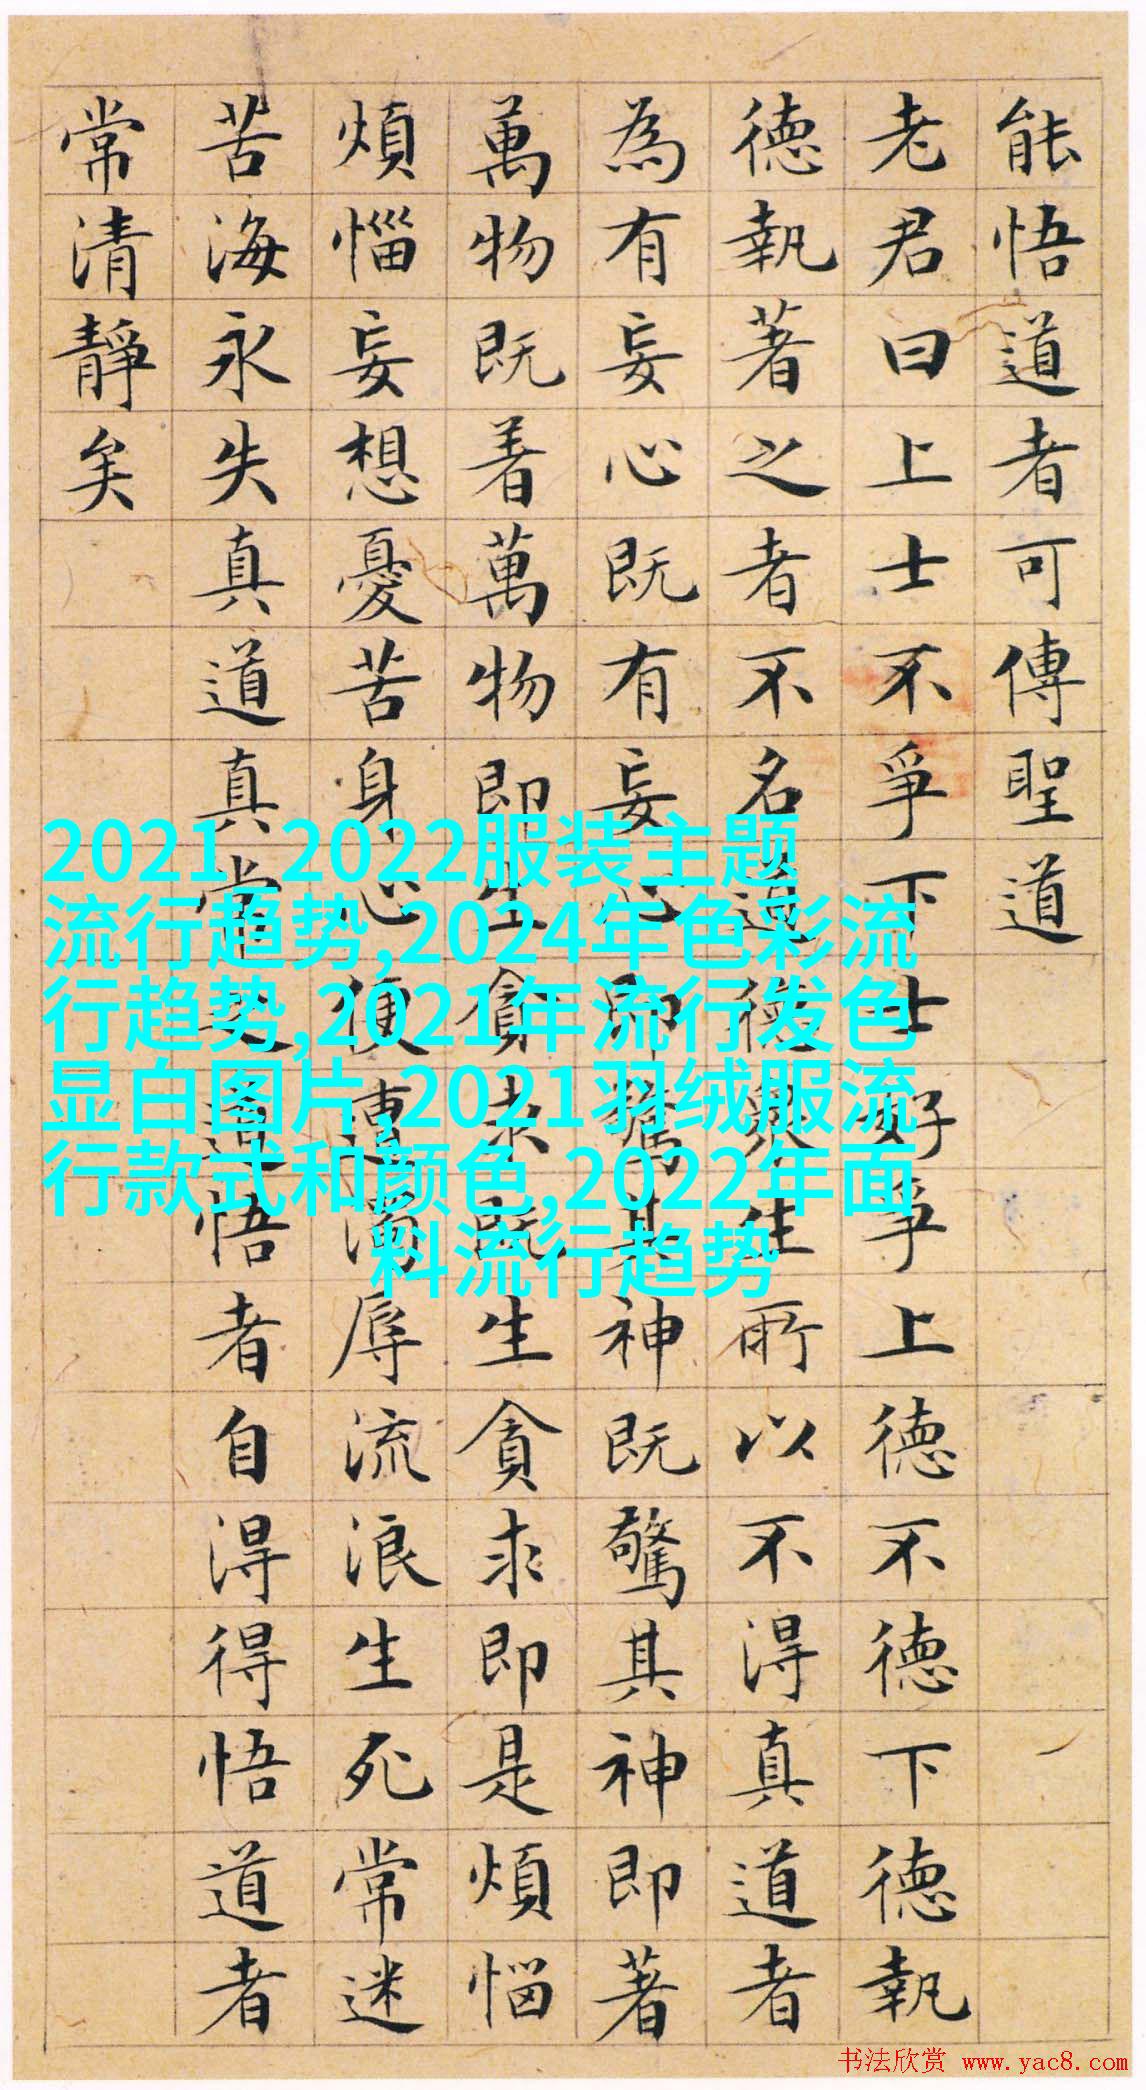 能悟道者可傳聖道
老君曰上士不爭下士好爭上德不德下德執
德執著之者不名道德衆生所以不得真道者
為有妄心既有妄心即驚其神既驚其神即著
萬物既着萬物即生貪求既生貪求即是煩惱
煩惱妄想憂苦身心便遭濁辱流浪生死常迷
苦海永失真道真常之道悟者自得得悟道者
常清靜矣
2021_2022服装主题
流行趋势,2024年色彩流
行趋势,2021年流行发色
显白图片,2021羽绒服流
行款式和颜色,2022年面
料流行趋势
书法欣赏 www.yac8.com